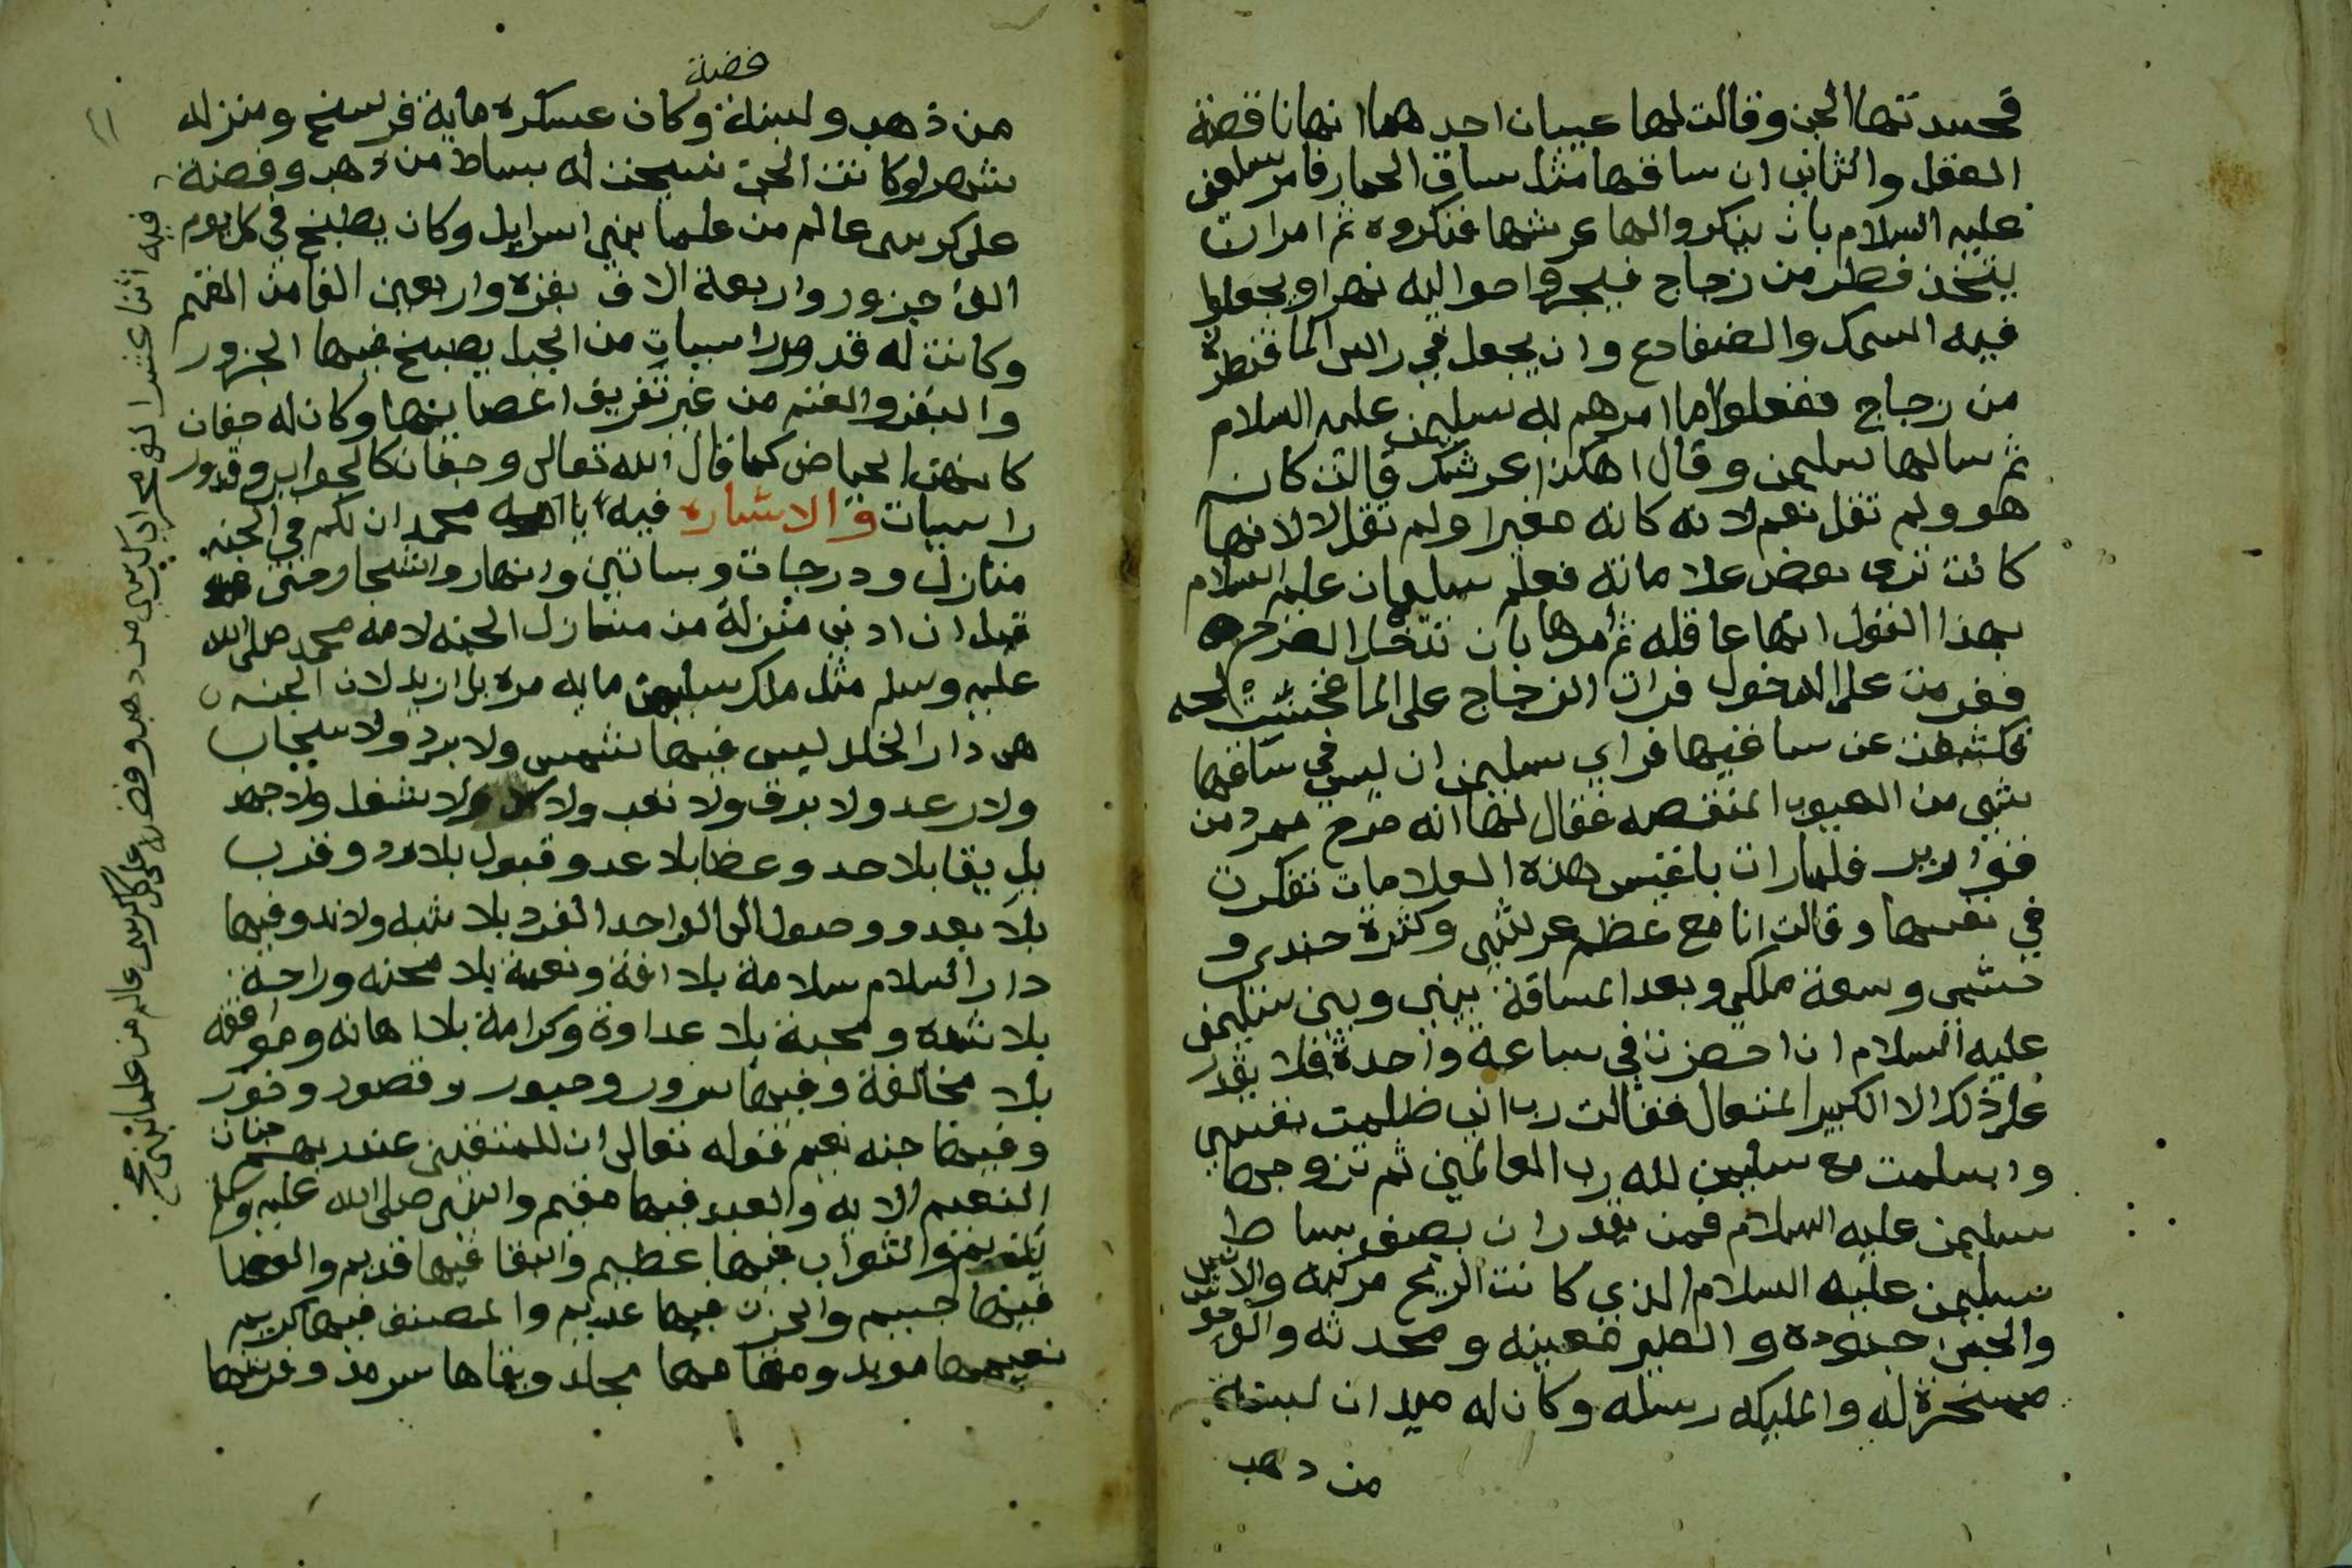 فحسدتها الجن وقالت لها عيبان احدهما انها ناقصة
العقل والثاني ان ساقها مثل ساق الحمار فامر سليمن
عليه السلام بان ينكروا لها عرشها فنكروه ثم امر ان
يتخذ قصر من زجاج فيجروا حواليه نهرا ويجعلوا
فيه السمك والضفادع وان يجعل في راس الما قنطرة
من زجاج ففعلوا ما امرهم به سليمن عليه السلام
ثم سالها سليمن وقال اهكذا عرشك قالت كانه
هو ولم تقل نعم لانه كانه مغيرا ولم تقل لا لانها
كانت ترى بعض علاماته فعلم سليمان عليه السلام
بهذا القول انها عاقله ثم امرها بان تدخل الصرح
فعزمت على الدخول فرات الزجاج على الما فحسبته لجه
فكشفت عن ساقيها فراي سليمن ان ليس في ساقها
شي من العيوب المنقصه فقال لها انه صرح ممرد من
قوارير فلما رات بلقيس هذه العلامات تفكرت
في نفسها وقالت انا مع عظم عرشي وكثرة جندي و
حشمي وسعة ملكي وبعد المسافة بيني وبين سليمن
عليه السلام ان احضرت في ساعة واحدة فلا يقدر
على ذلك الا الكبير المتعال فقالت رب اني ظلمت نفسي
واسلمت مع سليمن لله رب العالمين ثم تزوجها
سليمن عليه السلام فمن يقدر ان يصف بساط
سليمن عليه السلام الذي كانت الريح مركبه والانس
والجن جنوده والطير معينه ومحدثه والوحوش
مسخرة له والمليكه رسله وكان له ميدان لبنة
من دهب
فضة
من ذهب ولبنة وكان عسكره ماية فرسخ ومنزله
شهرا وكانت الجن نسجت له بساط من ذهب وفضة
على كرسى عالم من علما بني اسرايل وكان يطبخ في كل يوم
الف جزور واربعة الاف بقرة واربعين الفا من الغنم
وكانت له قدور راسيات من الجبل يصبخ فيها الجزور
والبقر والغنم من غير تفريق اعضا ينها وكان له جفان
كانهن الحياض كما قال الله تعالى وجفان كالجواب وقدور
راسيات والاشاره فيه يا امه محمد ان لكم في الجنه
منازل ودرجات وبساتين وانهار واشجار
قيل ان ادنى منزلة من منازل الجنه لامه محمد صلى الله
عليه وسلم مثل ملك سليمن مايه مره بل ازيد لان الجنه
هى دار الخلد ليس فيها شمس ولا برد ولا سحاب
ولا رعد ولا برق ولا تعب ولا ولا شغل ولا جهد
بل بقا بلا حد وعطا بلا عد وقبول بلا رد وقرب
بلا بعد ووصول الى الواحد الفرد بلا شبه ولا ند وفيها
دار السلام سلامة بلا افة ونعمة بلا محنه وراحة
بلا شده ومحبة بلا عداوة وكرامة بلا اهانه وموافقه
بلا مخالفة وفيها سرور وحبور وقصور وحور
وفيها جنه نعيم قوله تعالى ان للمتقين عند ربهم جنات
النعيم الايه والعبد فيها مقيم والنبي صلى الله عليه وسلم
والثواب فيها عظيم والبقا فيها قديم والعطا
فيها جسيم والحزن فيها عديم والمضيف فيها كريم
نعيمها موبد ومقامها مجلد وبقاها سرمد وفرشها
فيه اثنا عشر الف كرسى من دهب وفضه على كل كرسى عالم من علما بني